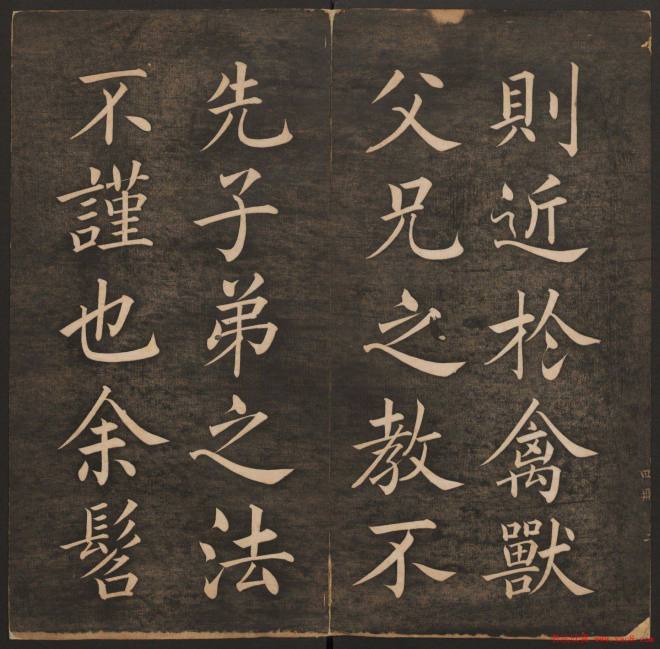 則近於禽獸
父兄之教不
先子弟之法
不謹也余髫